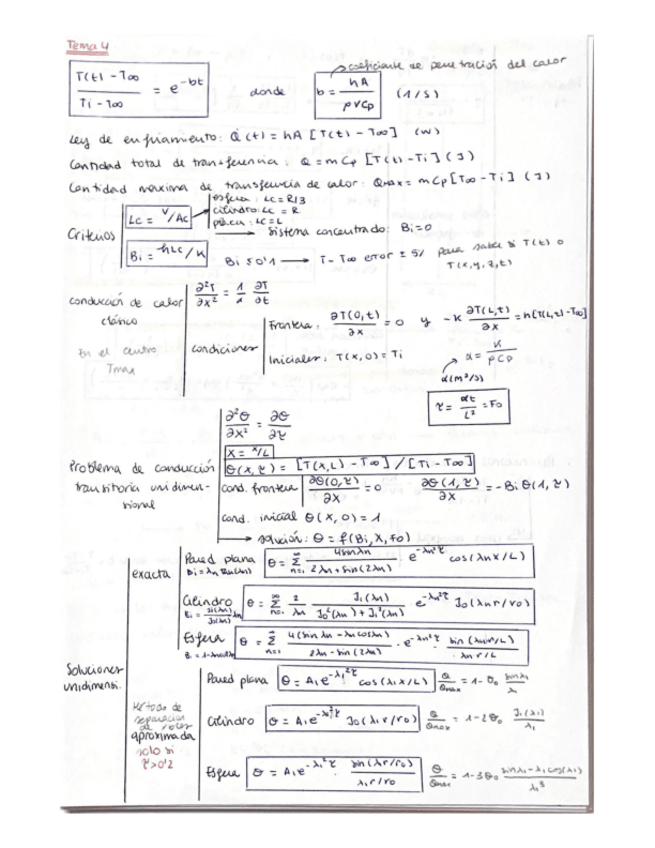 Tema 4
T(t) - T∞ / Ti - T∞ = e^-bt donde b = hA / ρVCp (1/s) → coeficiente de penetración del calor
Ley de enfriamiento: Q̇(t) = hA [T(t) - T∞] (W)
Cantidad total de transferencia: Q = mCp [T(t) - Ti] (J)
Cantidad maxima de transferencia de calor: Qmax = mCp [T∞ - Ti] (J)
Criterios
Lc = V/Ac
esfera: Lc = R/3
cilindro: Lc = R
placa: Lc = L
→ Sistema concentrado: Bi = 0
Bi = hLc/K
Bi ≤ 0'1 → T - T∞ error ± 5% para saber si T(t) o T(x,y,z,t)
conducción de calor clásico
En el centro Tmax
∂²T/∂x² = 1/α ∂T/∂t
condiciones
Frontera: ∂T(0,t)/∂x = 0 y -K ∂T(L,t)/∂x = h[T(L,t) - T∞]
Iniciales: T(x,0) = Ti
α = K/ρCp
α(m²/s)
τ = αt/L² = Fo
Problema de conducción transitoria unidimensional
∂²θ/∂X² = ∂θ/∂τ
X = x/L
θ(X,τ) = [T(x,L) - T∞] / [Ti - T∞]
cond. frontera ∂θ(0,τ)/∂X = 0 ∂θ(1,τ)/∂X = -Bi θ(1,τ)
cond. inicial θ(X,0) = 1
→ solución: θ = f(Bi, X, Fo)
Soluciones unidimensi.
exacta
Pared plana θ = Σ n=1 ∞ 4sinλn / 2λn + sin(2λn) e^-λn²τ cos(λnx/L)
Cilindro θ = Σ n=1 ∞ 2/λn J1(λn) / J0²(λn) + J1²(λn) e^-λn²τ J0(λnr/r0)
Esfera θ = Σ n=1 ∞ 4(sinλn - λn cosλn) / 2λn - sin(2λn) · e^-λn²τ sin(λnr/L) / λnr/L
Método de separación de
aproximada
solo si τ>0'2
Pared plana θ = A1e^-λ1²τ cos(λ1x/L) Q/Qmax = 1 - θ0 sinλ1/λ1
Cilindro θ = A1e^-λ1²τ J0(λ1r/r0) Q/Qmax = 1 - 2θ0 J1(λ1)/λ1
Esfera θ = A1e^-λ1²τ · sin(λ1r/r0) / λ1r/r0 Q/Qmax = 1 - 3θ0 sinλ1 - λ1cos(λ1) / λ1³